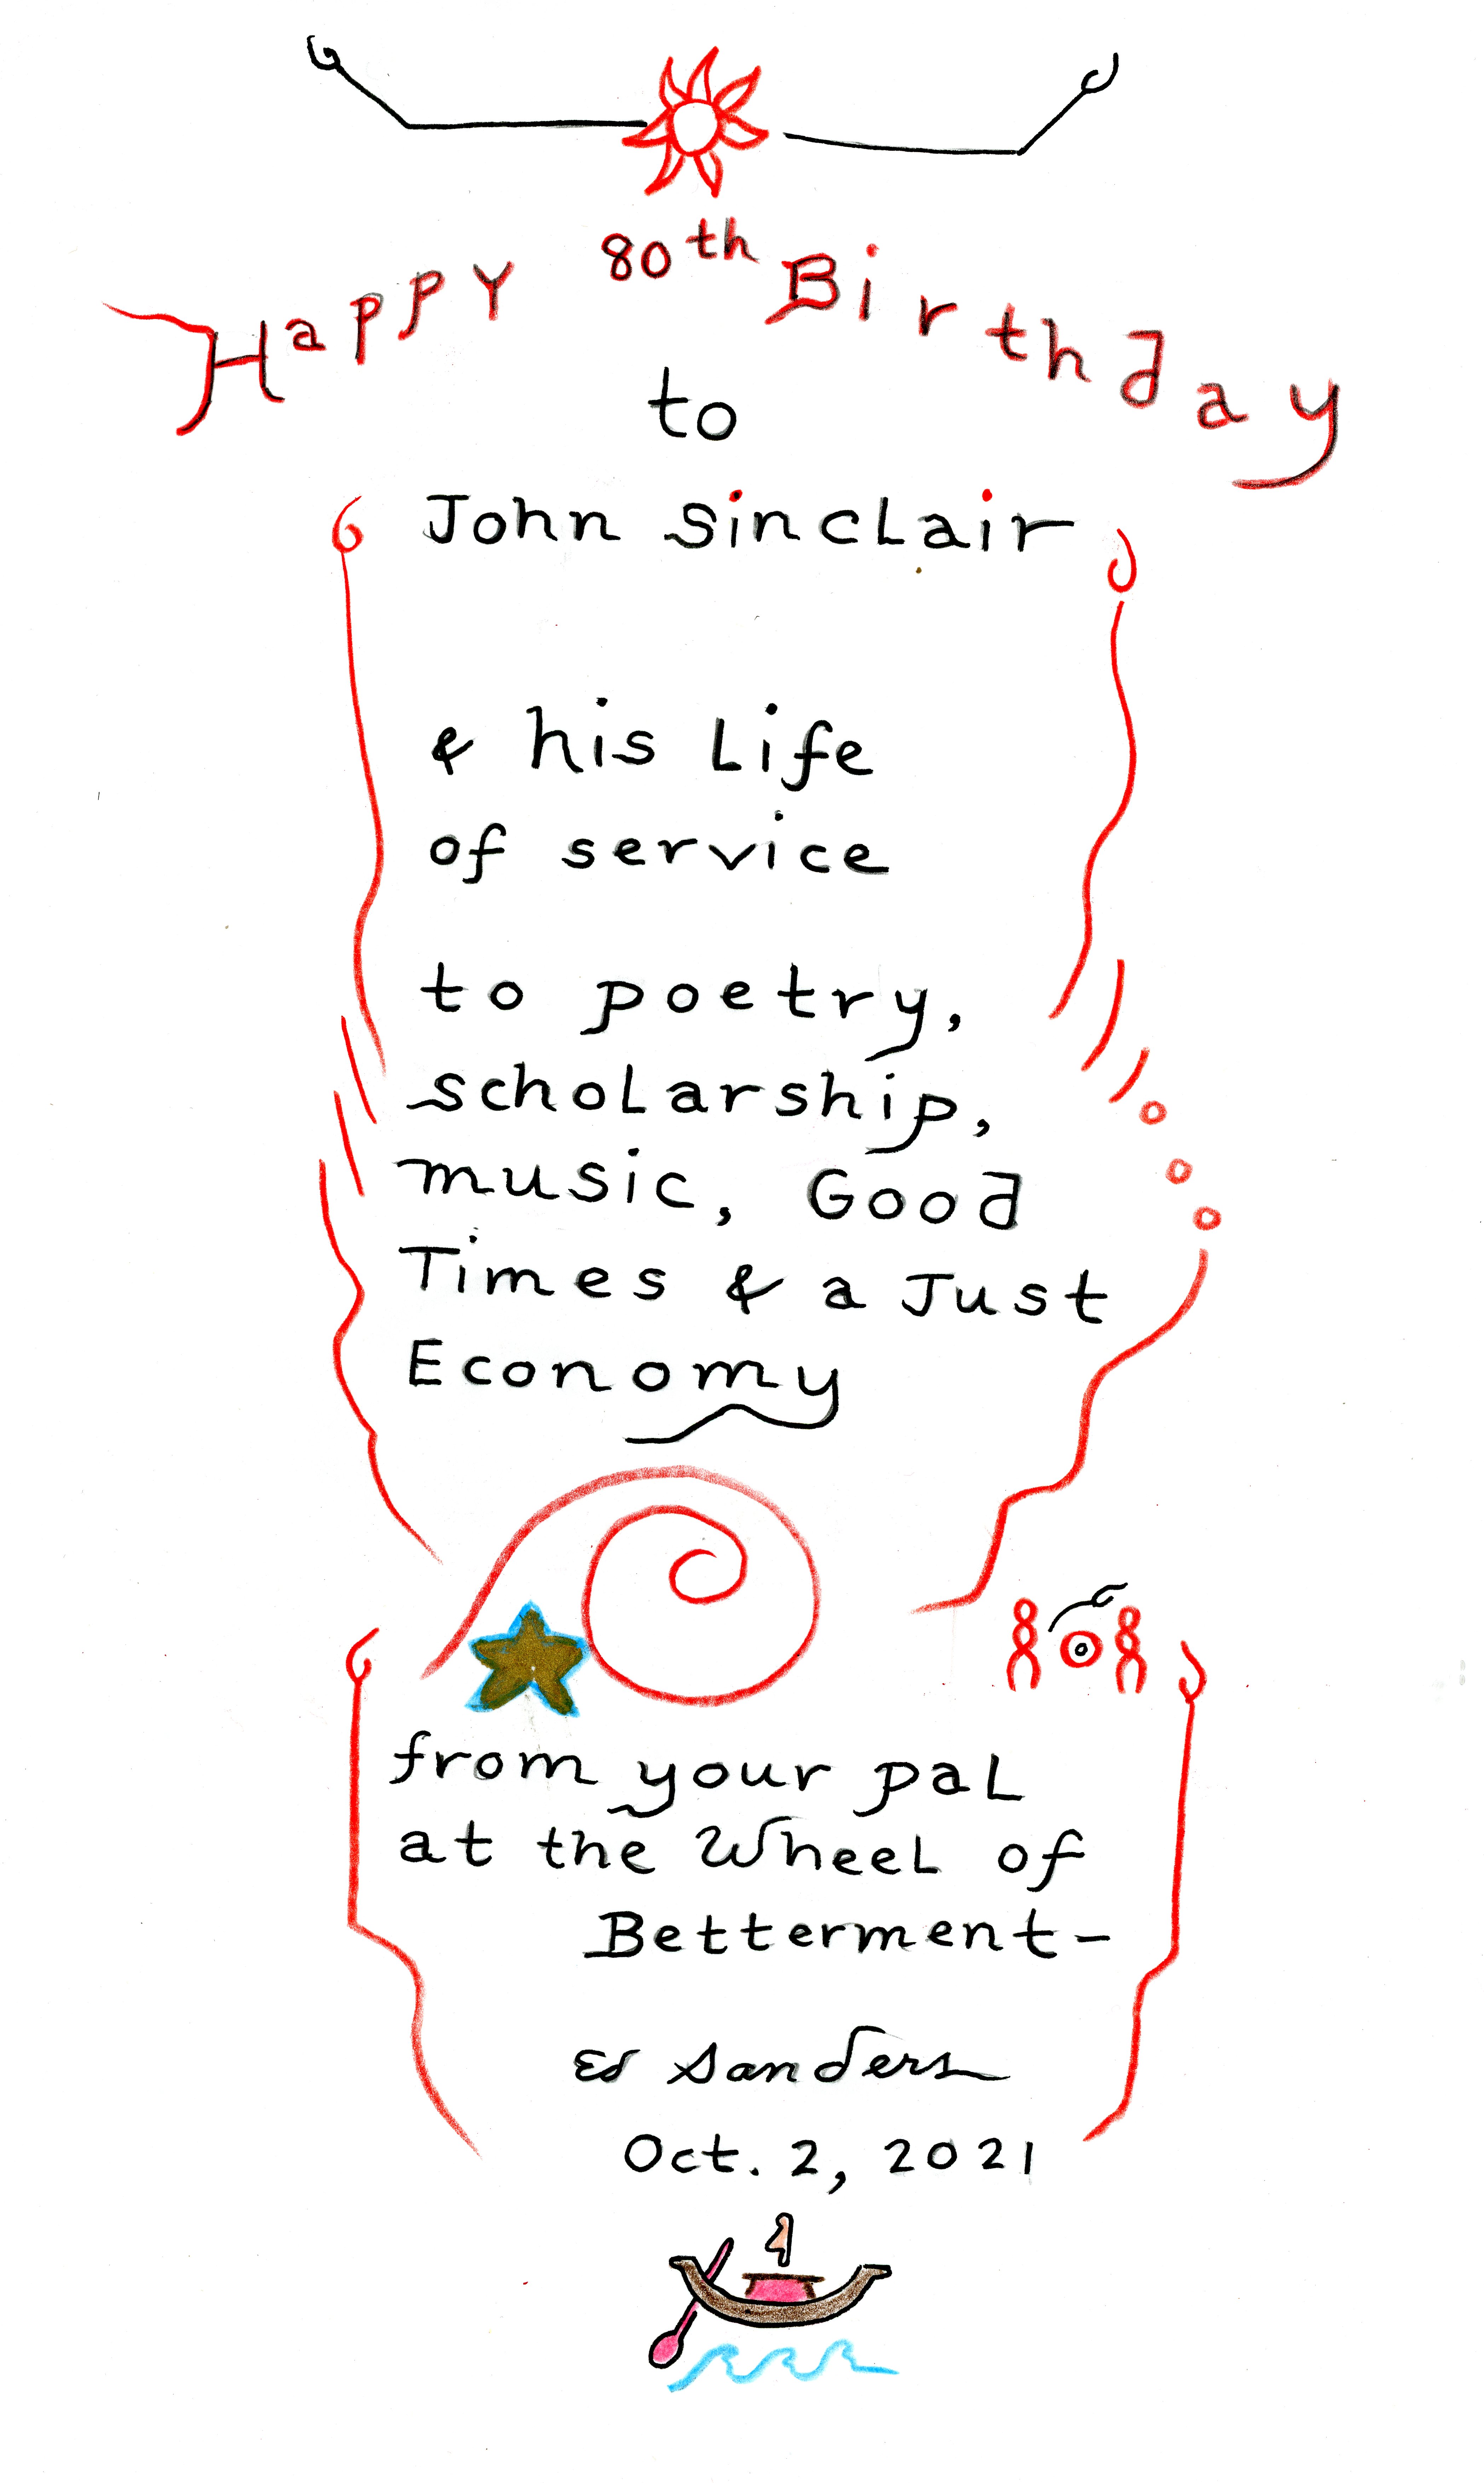 Happy 80th Birthday
to
John Sinclair
& his Life
of service
to poetry,
scholarship,
music, Good
Times & a Just
Economy
from your pal
at the Wheel of
Betterment-
Ed Sanders
Oct. 2, 2021